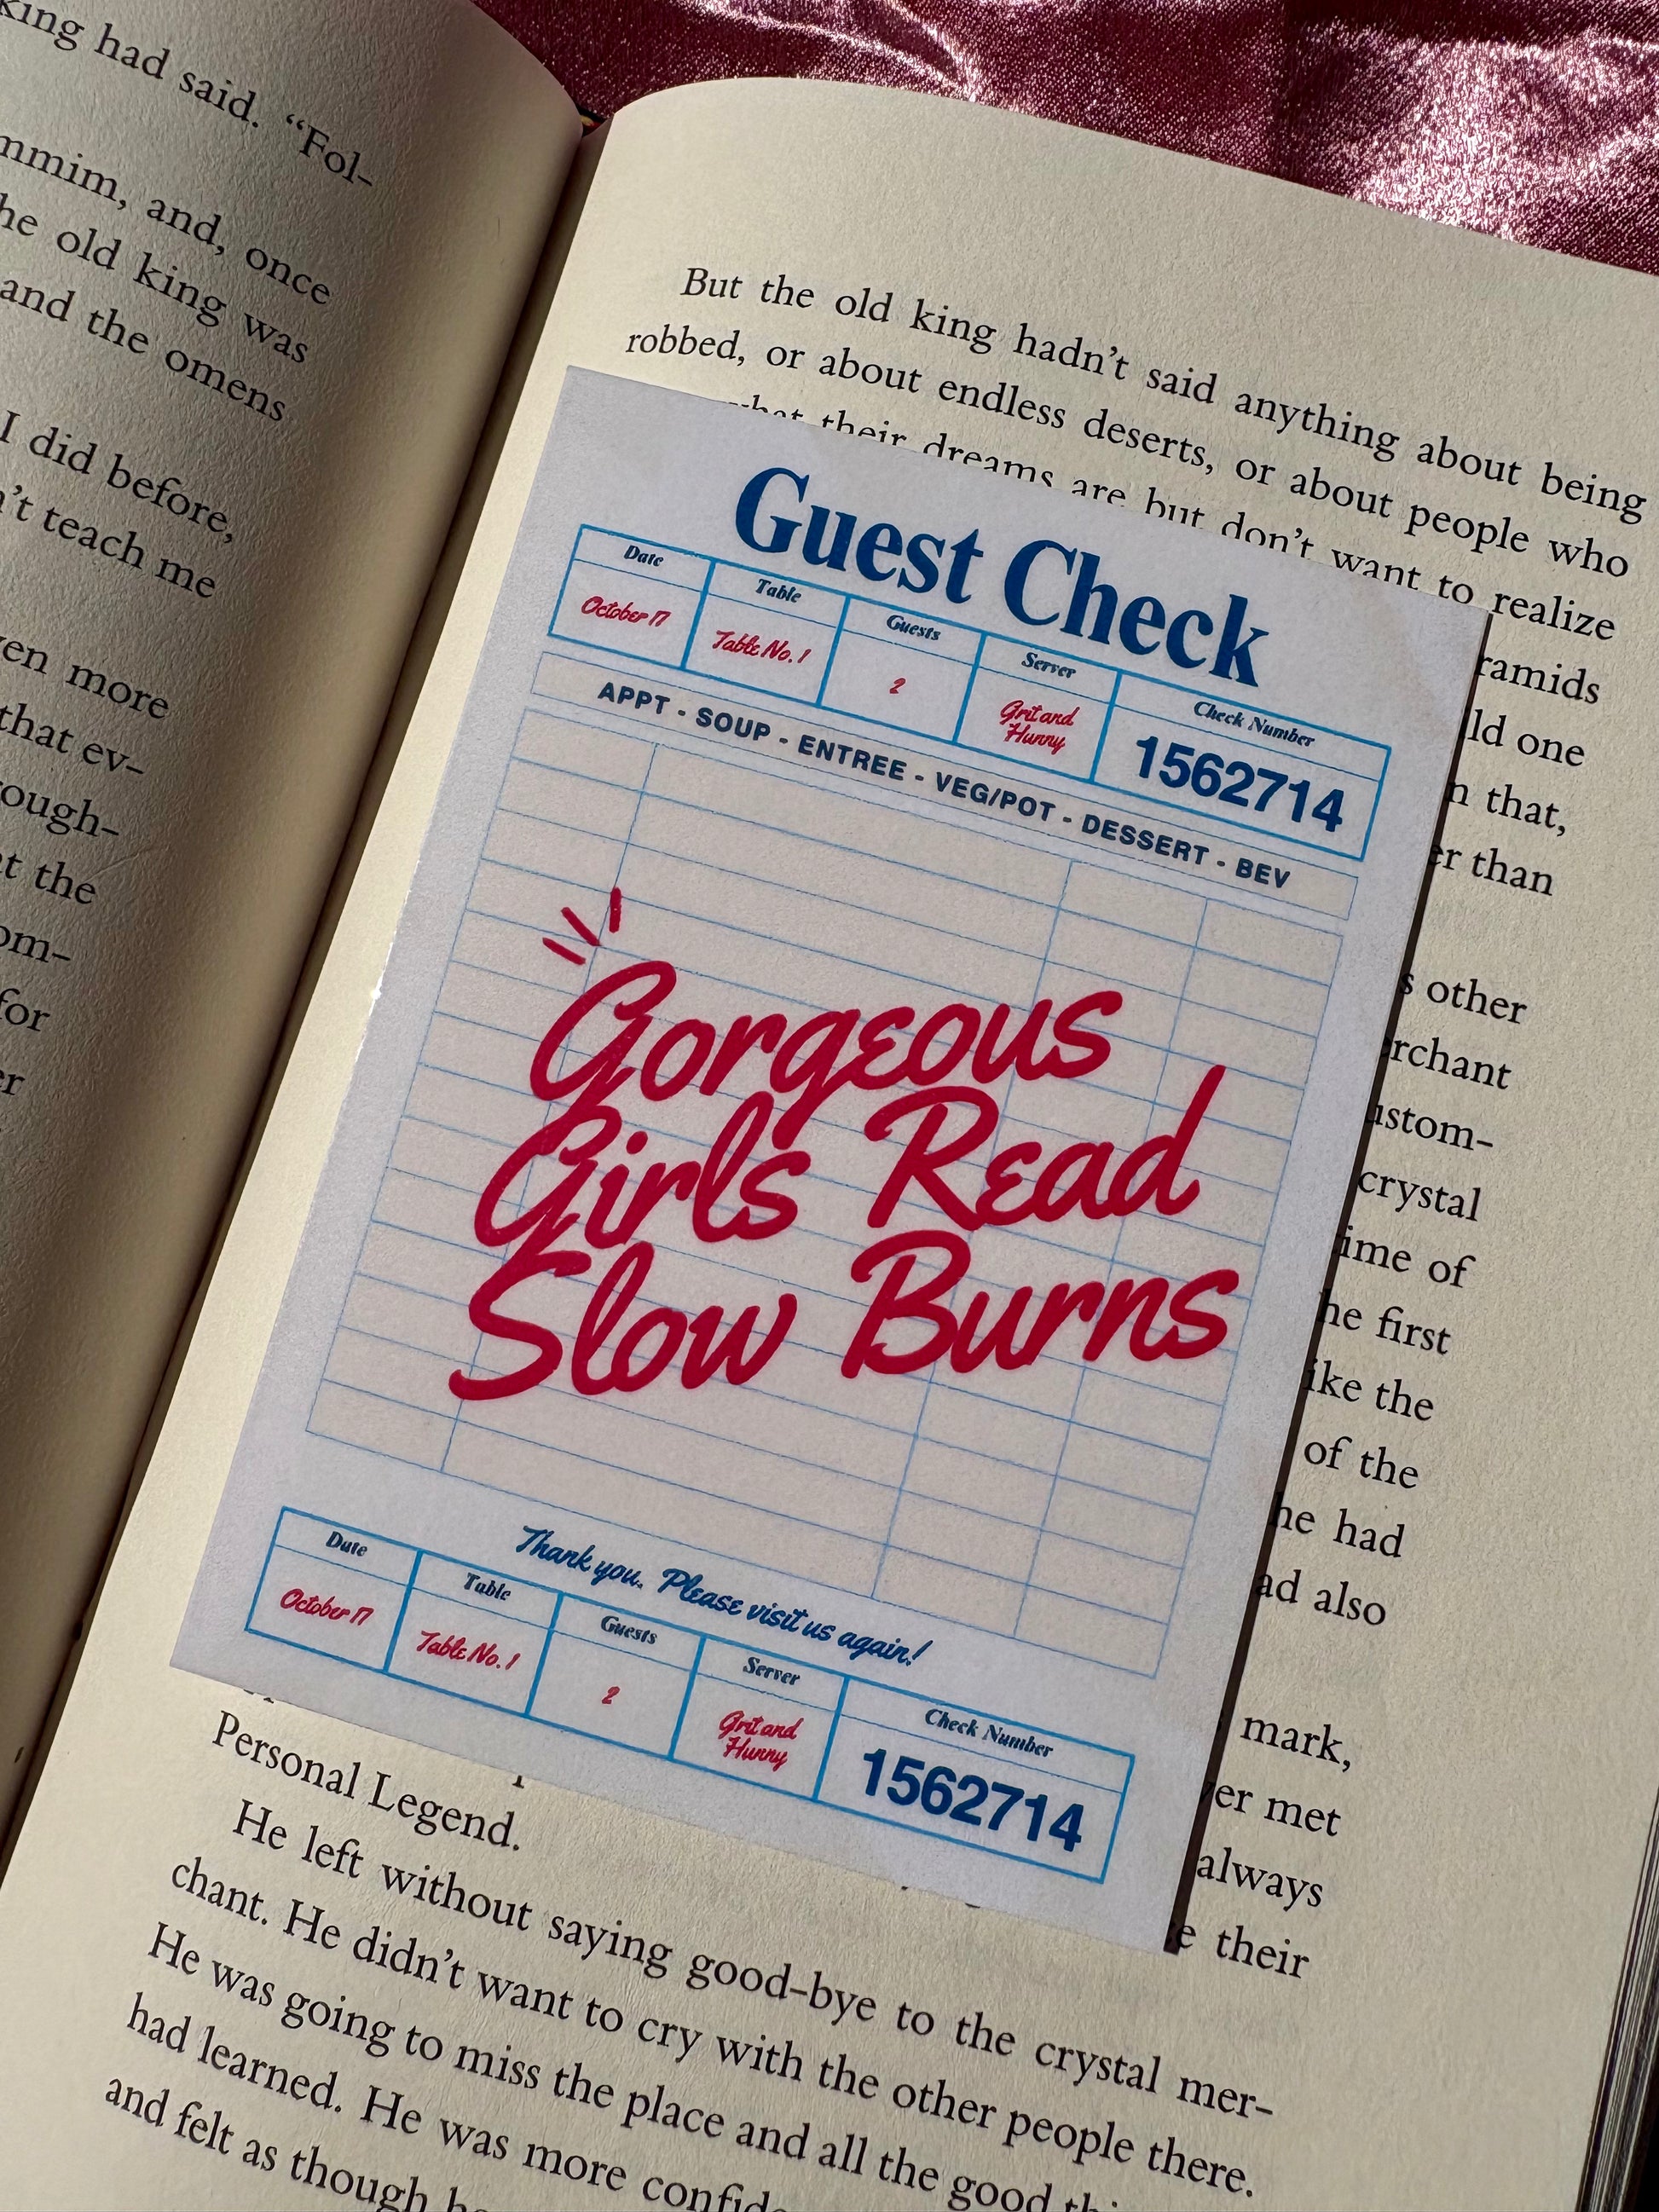 king had said. “Fol-
and, once
he old king was
and the omens
I did before,
teach me
more
that ev-
at the
for
But the old king hadn’t said anything about being
robbed, or about endless deserts, or about people who
what their dreams are but don’t want to realize
one
that,
than
other
crystal
of
first
the
of the
he had
also
mark,
met
always
their
Guest Check
Date Table Guests Server Check Number
October 17 Table No. 1 2 Grit and Hunny 1562714
APPT - SOUP - ENTREE - VEG/POT - DESSERT - BEV
Gorgeous
Girls Read
Slow Burns
Thank you. Please visit us again!
Date Table Guests Server Check Number
October 17 Table No. 1 2 Grit and Hunny 1562714
Personal Legend.
He left without saying good-bye to the crystal mer-
chant. He didn’t want to cry with the other people there.
He was going to miss the place and all the good
had learned. He was more
and felt as though